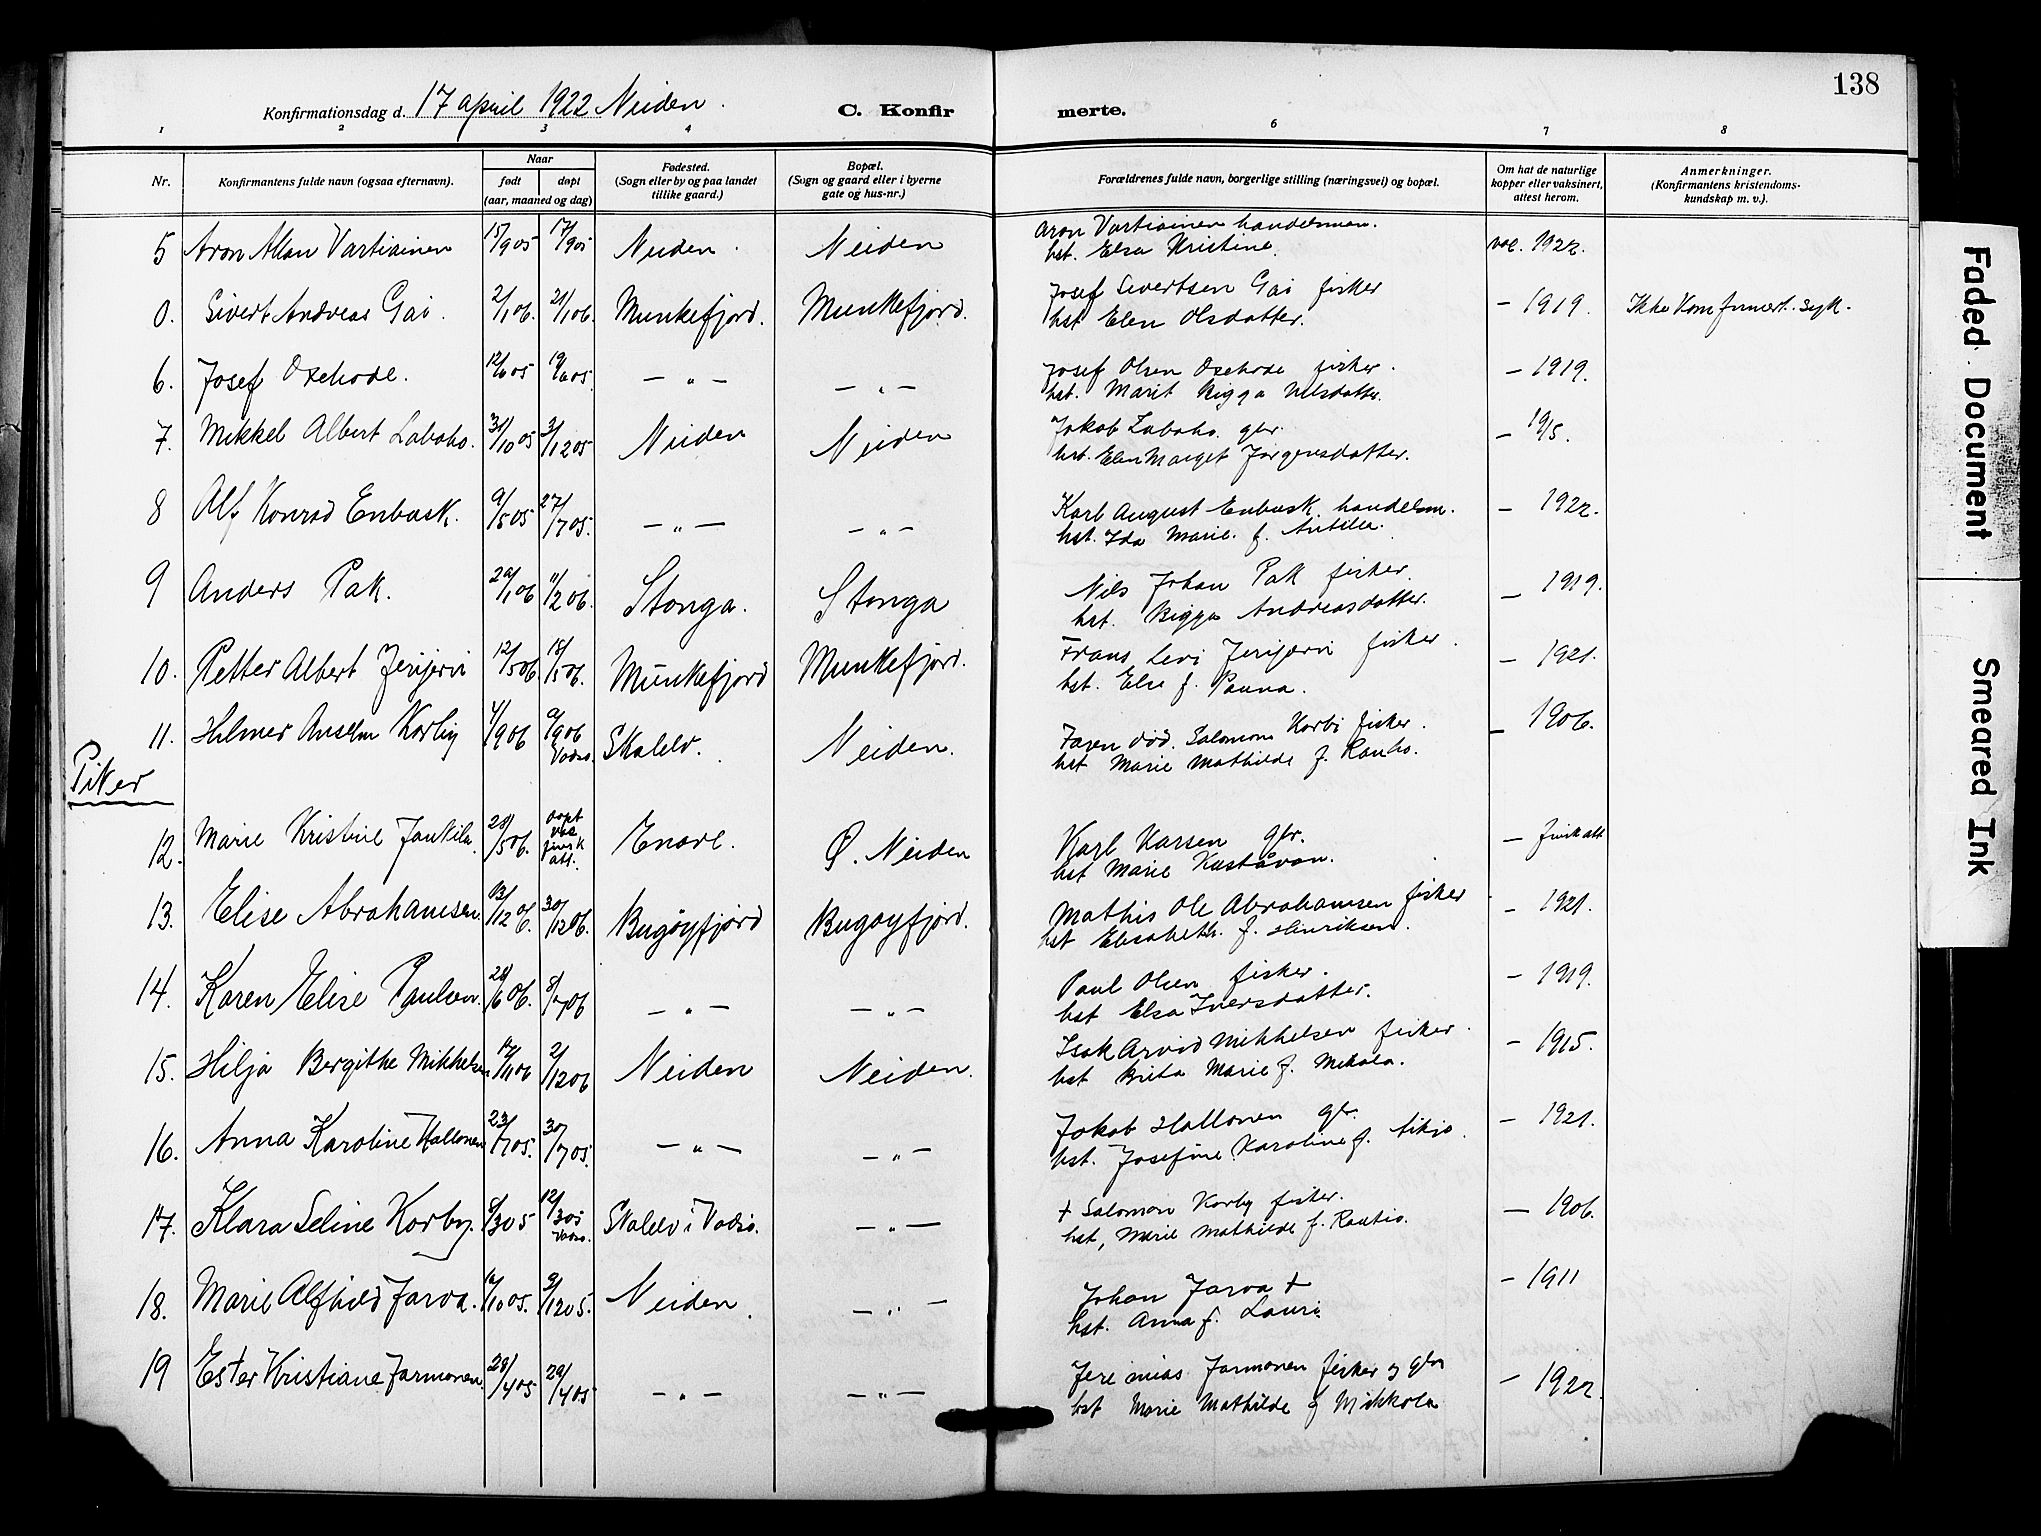 138
Konfirmationsdag d. 17 april 1922 Neiden.
C. Konfirmerte.
1 2 3 4 6 7 8
Nr.
Konfirmantens fulde navn (ogsaa efternavn).
Naar
født døpt
(aar, maaned og dag)
Fødested.
(Sogn eller by og paa landet
tillike gaard.)
Bopæl.
(Sogn og gaard eller i byerne
gate og hus-nr.)
Forældrenes fulde navn, borgerlige stilling (næringsvei) og bopæl.
Om hat de naturlige
kopper eller vaksinert,
attest herom.
Anmerkninger.
(Konfirmantens kristendoms-
kundskap m. v.).
5 Aron Allan Vartiainen 15/9 05 17/9 05 Neiden. Neiden Aron Vartiainen handelsman. vac. 1922.
hst. Elsa Kristine.
0. Sivert Andreas Gai. 2/1 06. 21/1 06. Munkefjord. Munkefjord. Josef Sivertsen Gai fisker — 1919. Ikke konfirmert. syk.
hst Elen Olsdatter.
6. Josef Oxehode. 12/6 05 19/6 05. — „ — — „ — Josef Olsen Oxehode fisker. — 1919.
hst. Marit Bigga Nilsdatter.
7. Mikkel Albert Labaho. 31/10 05 3/12 05 Neiden Neiden Jakob Labaho. gbr. — 1915.
hst. Elen Marget Jørgensdatter.
8 Alf Konrad Enbusk. 9/5 05 27/7 05. — „ — — „ — Karl August Enbusk. handelsm. — 1922.
hst. Ida Marie. f. Anttila.
9 Anders Pak. 29/1 06 11/2 06. Stonga. Stonga Nils Johan Pak fisker. — 1919.
hst. Bigga Andreasdatter.
10. Petter Albert Jerijervi 12/5 06. 18/5 06. Munkefjord Munkefjord. Frans Levi Jerijervi fisker. — 1921.
hst. Else f. Pauna.
11. Hilmer Anselm Korby 4/9 06 9/9 06 Vadsø. Skalelv. Neiden. Faren død. Salomon Korbi fisker. — 1906.
hst Marie Mathilde f. Rautio.
Piker
12. Marie Kristine Jankila. 28/5 06. døpt finsk att. Enare. Ø. Neiden Karl Karsen gbr. — finsk att
hst Marie Kustavan.
13. Elise Abrahamsen. 13/12 06. 30/12 06. Bugøyfjord Bugøyfjord. Mathis Ole Abrahamsen fisker — 1921.
hst Elisabeth. f. Henriksen.
14. Karen Elise Paulsen. 28/6 06. 8/7 06 — „ — — „ — Paul Olsen fisker. — 1919.
hst Elsa Iversdatter.
15. Hilja Bergithe Mikkelsen. 17/11 06 2/12 06 Neiden Neiden. Isak Arvid Mikkelsen fisker. — 1915.
hst Brita Marie f. Mikola.
16. Anna Karoline Hallonen 23/7 05. 30/7 05. — „ — — „ — Jakob Hallonen gbr. — 1921.
hst. Josefine Karoline f. Aikio.
17. Klara Seline Korby. 8/3 05 12/3 05 Vadsø. Skalelv i Vadsø. — „ — † Salomon Korby fisker. — 1906.
hst, Marie Mathilde f. Rautio.
18. Marie Alfhild Jarva. 16/10 05. 9/12 05. Neiden. — „ — Johan Jarva † — 1911
hst. Anna f. Lauri.
19 Ester Kristiane Jarmonen. 28/4 05 29/4 05 — „ — — „ — Jeremias Jarmonen fisker og gbr — 1922.
hst Marie Mathilde f Mikkola
Faded Document
Smeared Ink